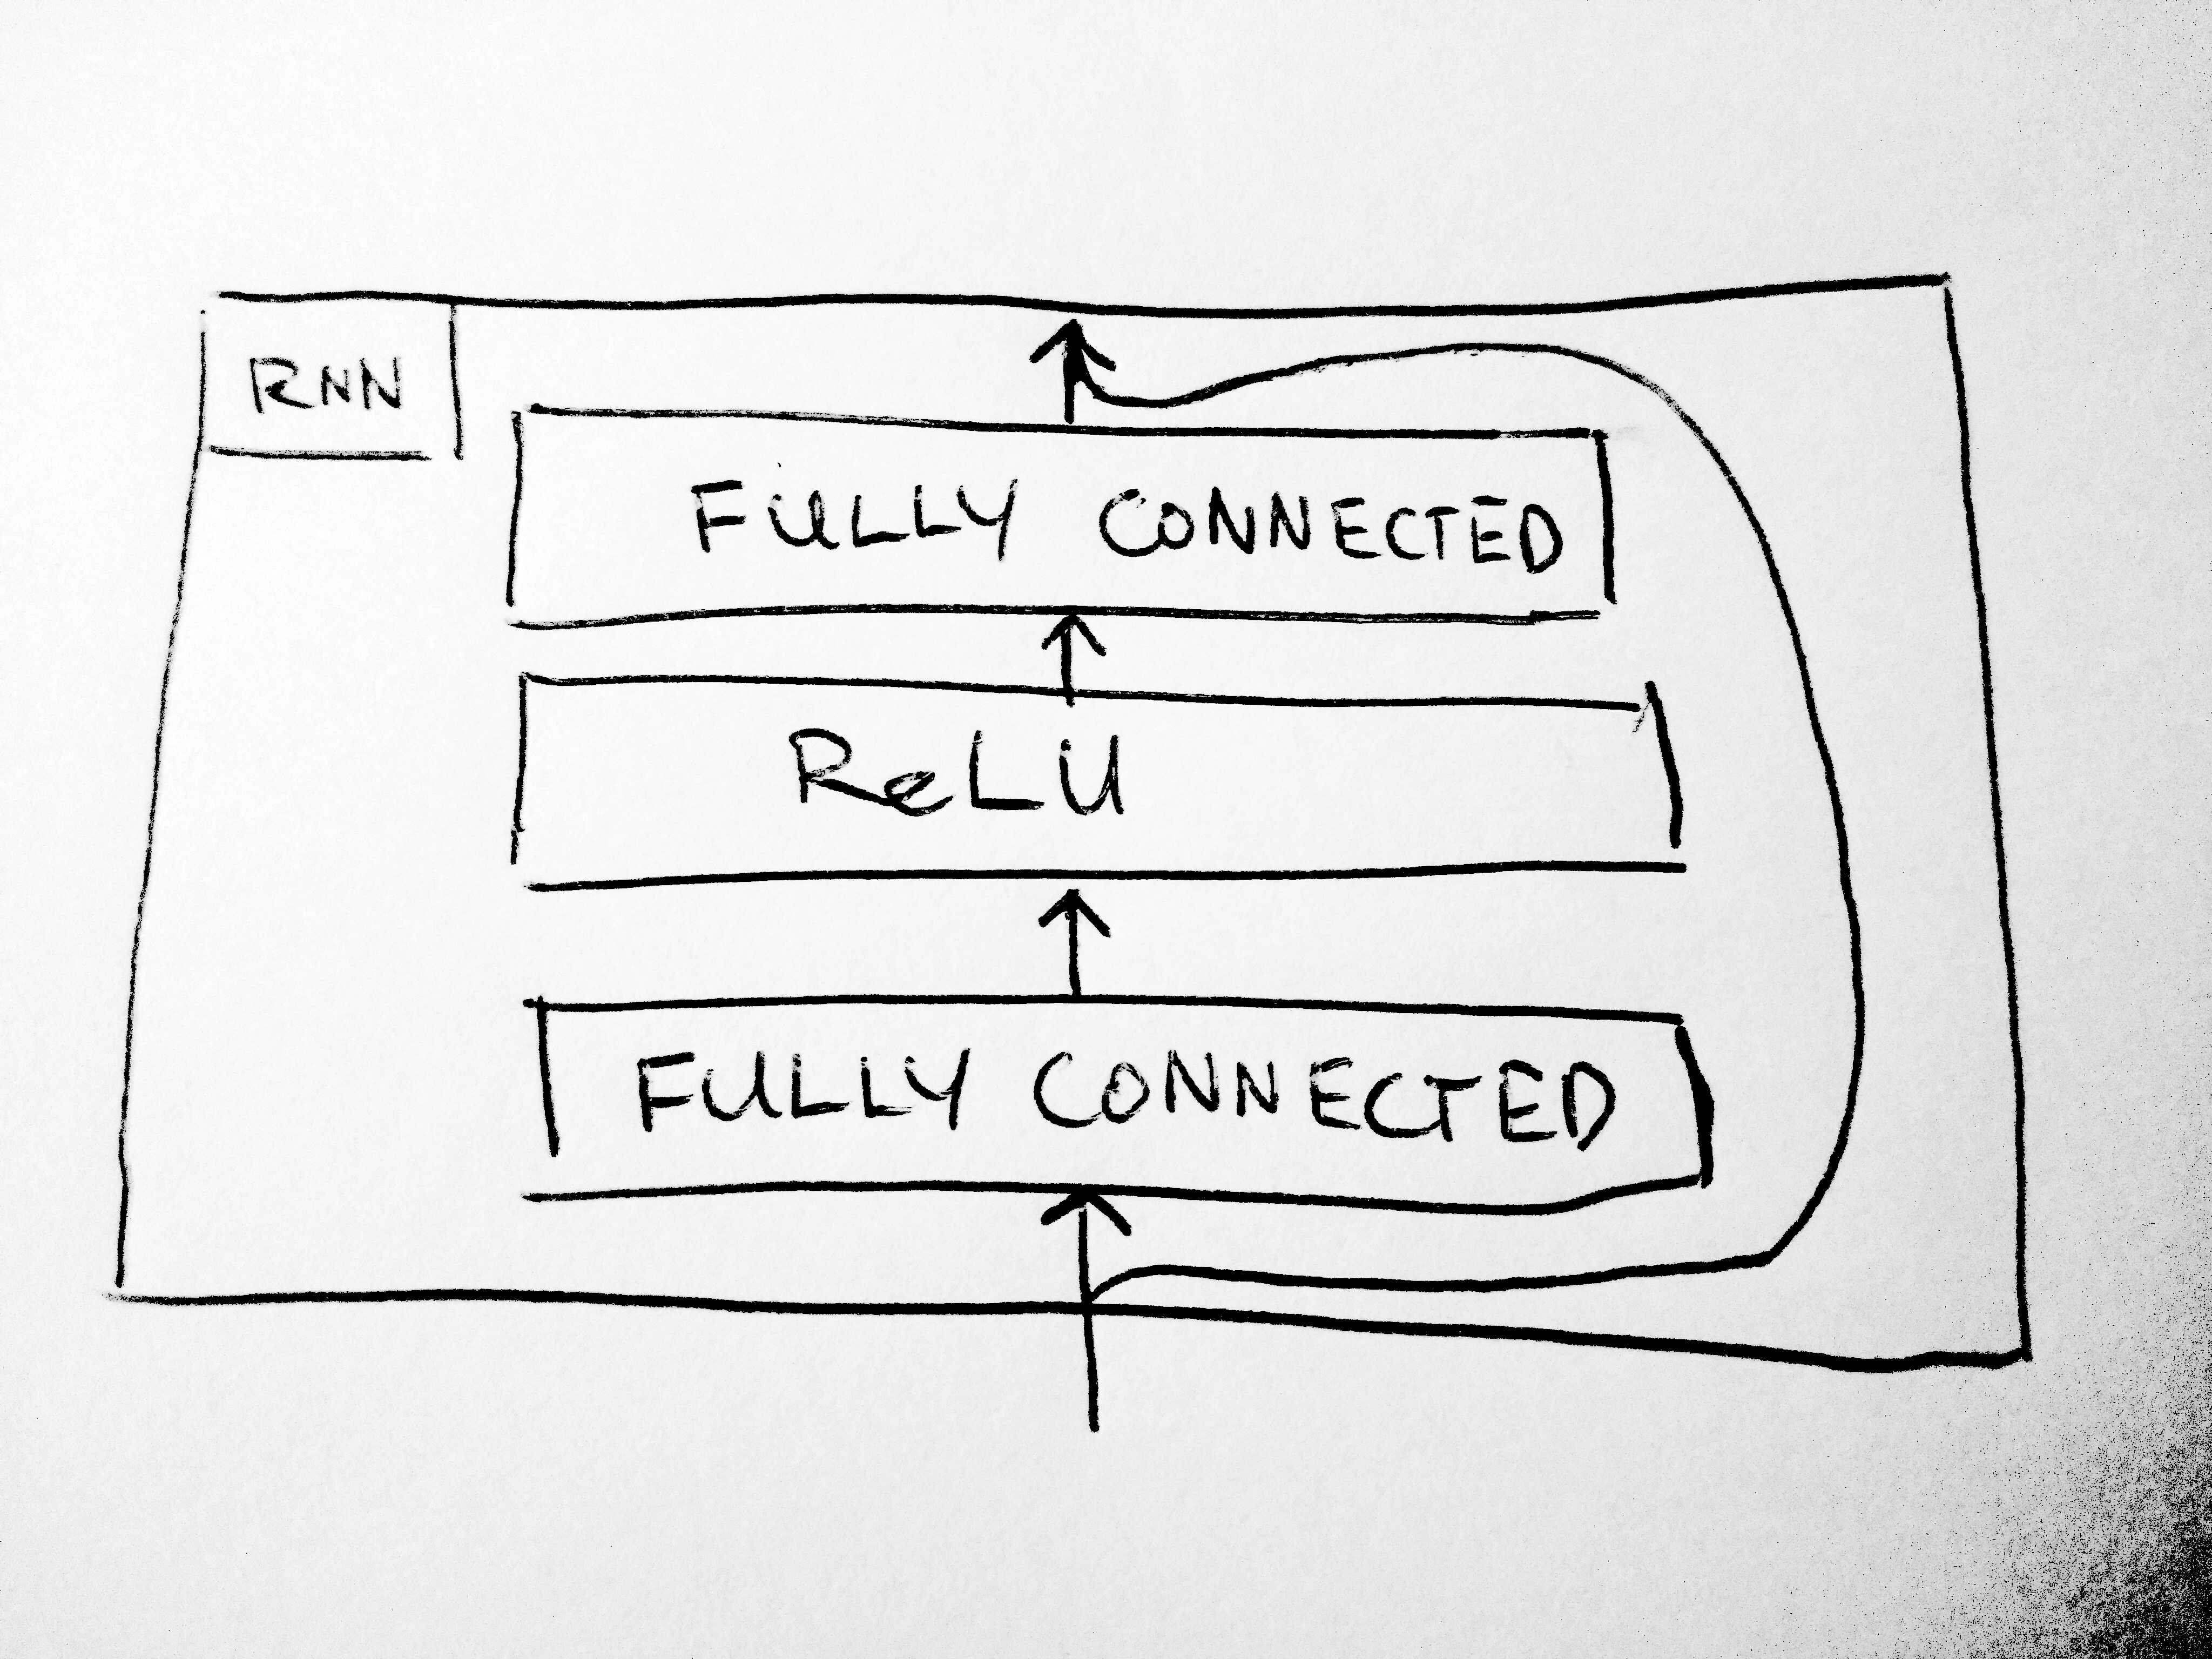 RNN
FULLY CONNECTED
ReLU
FULLY CONNECTED